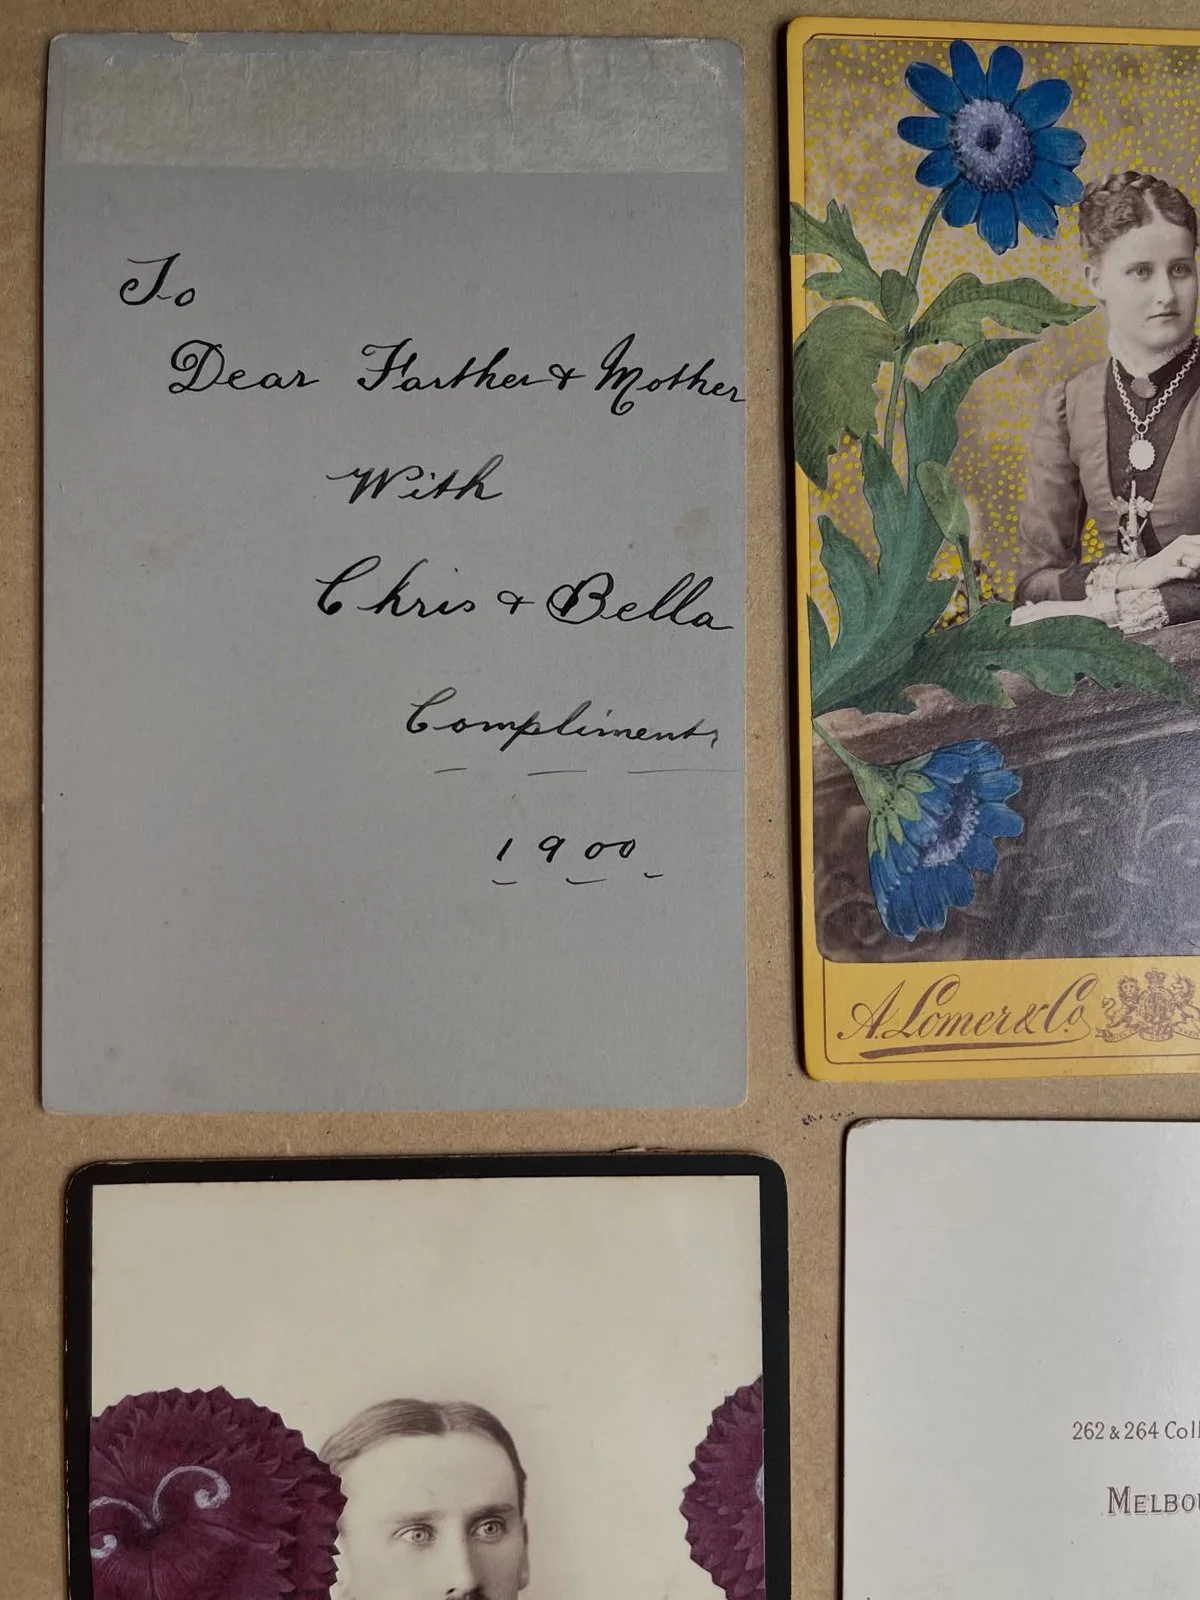 To
Dear Farther & Mother
With
Chris & Bella
Compliments
1900
A. Lomer & Co
262 & 264 Coll
MELBOU